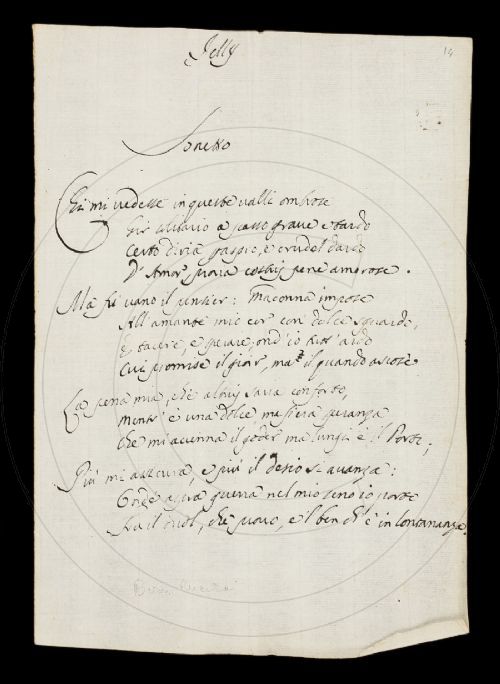 Jelly
14
Sonetto
Chi mi vedesse in queste valli ombrose
Gir solitario a passo grave e tardo
Certo diria gaspio, e crudel dardo
D'Amor, prova costui pene amorose.
Ma fu vano il pensier: Madonna impose
All'amante mio cor con dolce sguardo,
E tacere, e penare, ond'io tutt'ardo
Cui promise il gioir, ma il quando ascose
La pena mia, ch'è altrui saria conforto,
Mentr'è una dolce mia speranza
Che mi accenna il goder ma lungi è il Porto;
Più mi assicura, e più il desio s'avanza:
Ond'è aspra guerra nel mio seno io porto
Fra il duol, che provo, e 'l ben ch'è in lontananza.